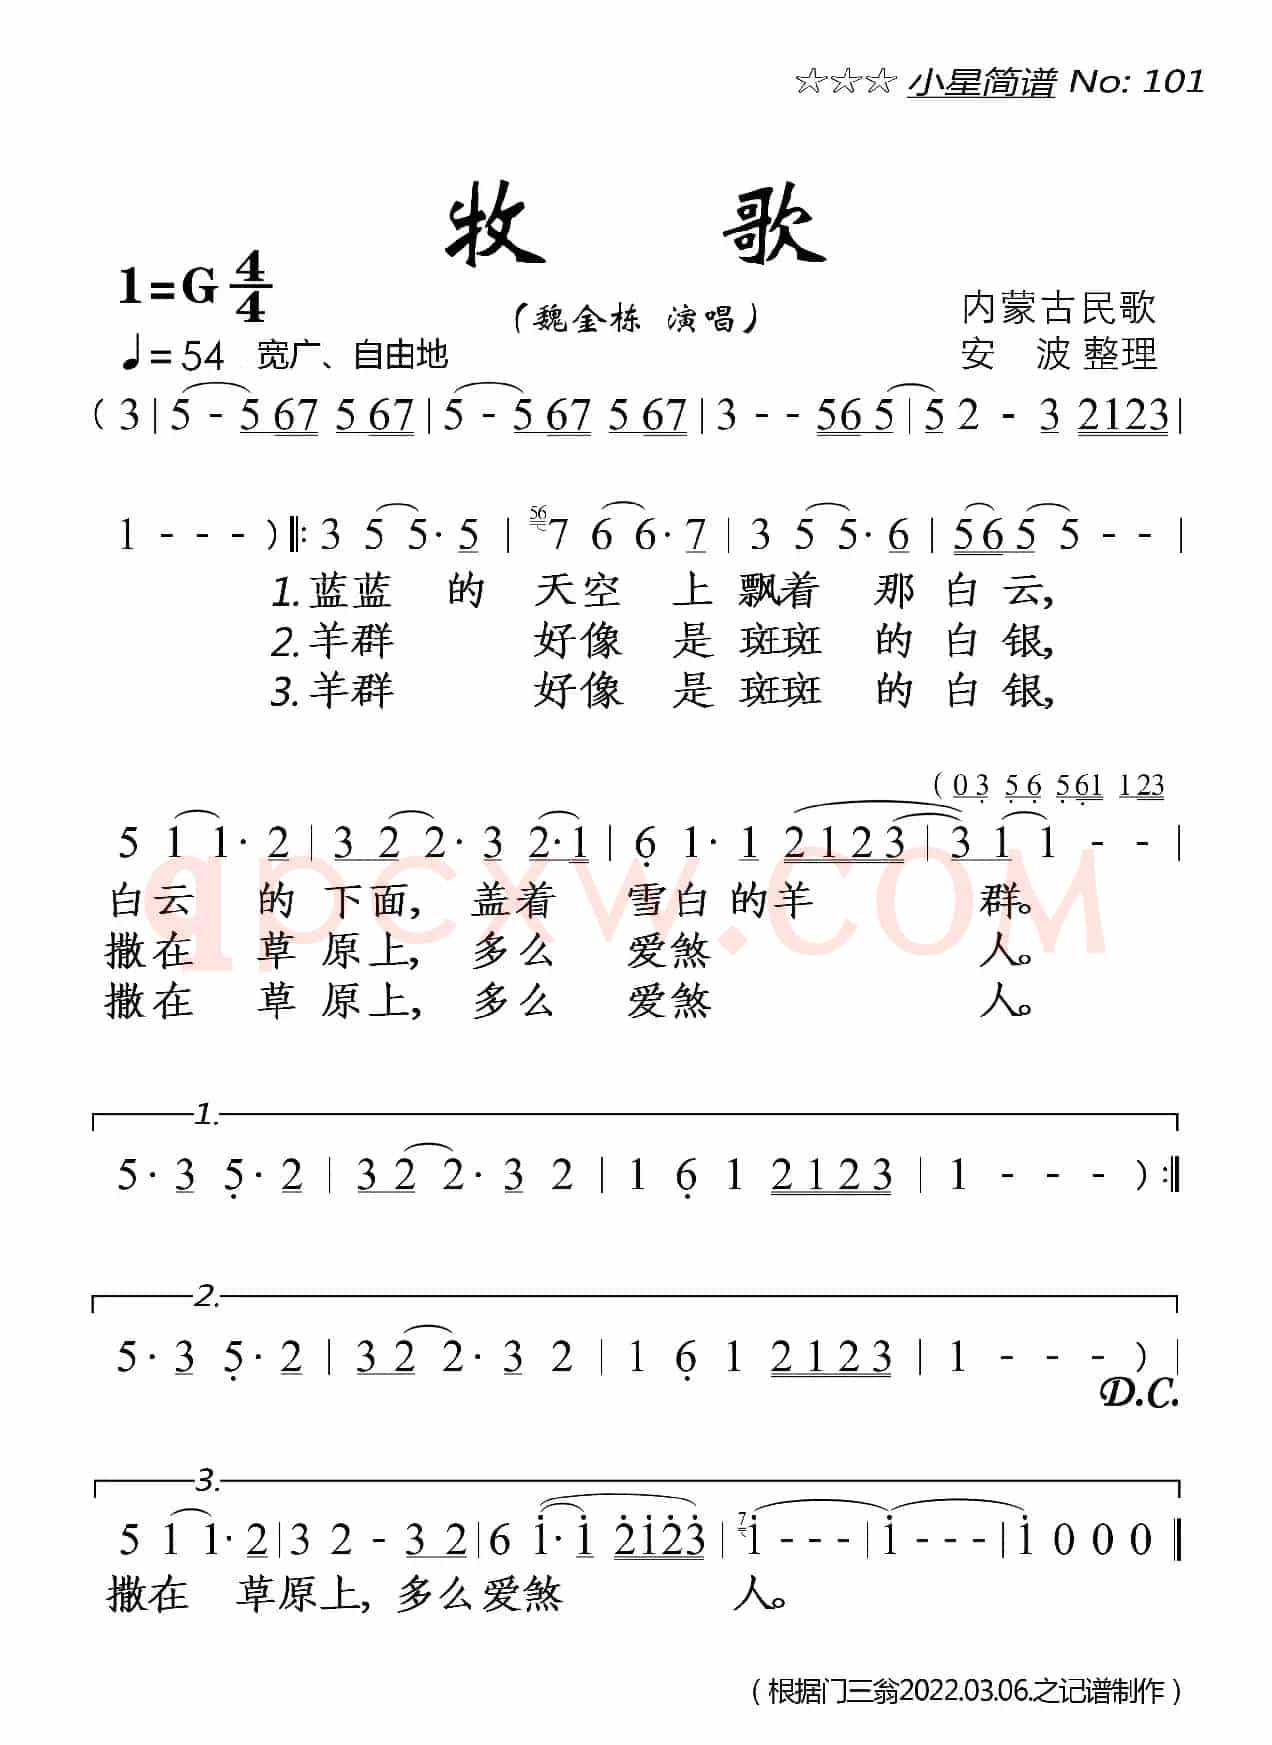 ☆☆☆ 小星简谱 No: 101
牧 歌
1=G 4/4
（魏金栋 演唱） 内蒙古民歌
♩=54 宽广、自由地 安 波 整理
( 3 | 5 - 5 67 5 67 | 5 - 5 67 5 67 | 3 - - 56 5 | 5 2 - 3 2123 |
1 - - - ) ‖: 3 5 5· 5 | 56 7 6 6· 7 | 3 5 5· 6 | 56 5 5 - - |
1. 蓝蓝 的 天空 上 飘着 那 白 云,
2. 羊群 好像 是 斑斑 的 白 银,
3. 羊群 好像 是 斑斑 的 白 银,
( 0 3 5 6 5 61 1 23
5 1 1· 2 | 3 2 2· 3 2· 1 | 6 1· 1 2 1 2 3 | 3 1 1 - - |
白云 的 下面, 盖着 雪白的羊 群。
撒在 草 原上, 多么 爱煞 人。
撒在 草 原上, 多么 爱煞 人。
qpcxw.COM
1.
5· 3 5· 2 | 3 2 2· 3 2 | 1 6 1 2 1 2 3 | 1 - - - ) :‖
2.
5· 3 5· 2 | 3 2 2· 3 2 | 1 6 1 2 1 2 3 | 1 - - - ) |
D.C.
3.
5 1 1· 2 | 3 2 - 3 2 | 6 1· 1 2123 | 7 1 - - - | 1 - - - | 1 0 0 0 ‖
撒在 草原上, 多么爱煞 人。
（根据门三翁2022.03.06.之记谱制作）